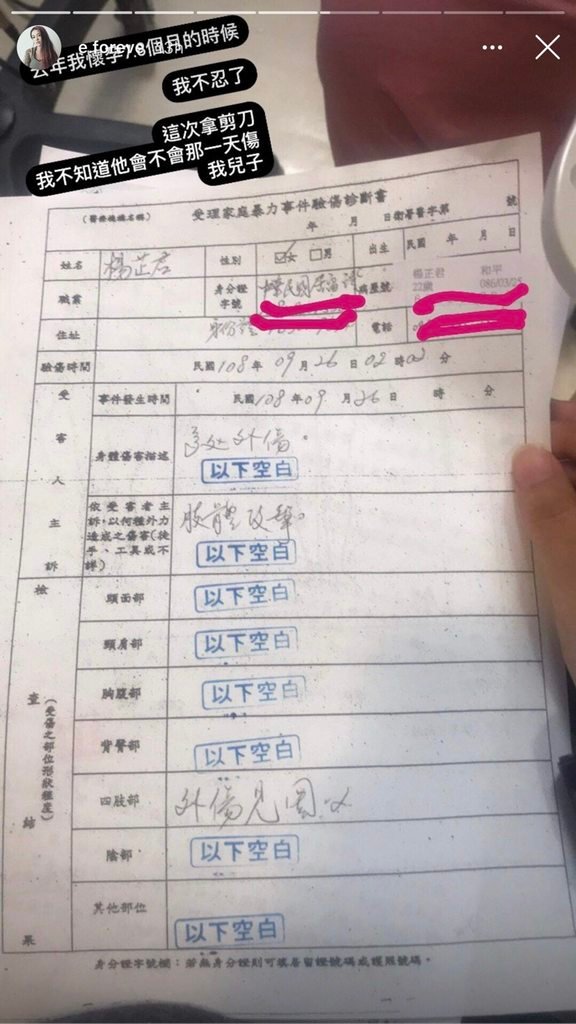 e.foreve 13h
去年我懷孕7.8個月的時候
我不忍了
這次拿剪刀
我不知道他會不會那一天傷
我兒子
(醫療機構名稱) 受理家庭暴力事件驗傷診斷書
年 月 日衛署醫字第 號
姓名 性別 ☑女 □男 出生 民國 年 月 日
職業 身分證字號 病歷號
楊正君 和平
22歲 086/03/25
住址 電話
驗傷時間 民國108年 09月 26日 02時02分
受害人主訴
事件發生時間 民國108年09月26日 時 分
身體傷害描述 多處外傷。
以下空白
依受害者主訴,以何種外力造成之傷害(徒手、工具或不詳) 肢體攻擊。
以下空白
檢查結果
(受傷之部位形狀程度)
頭面部 以下空白
頸肩部 以下空白
胸腹部 以下空白
背臀部 以下空白
四肢部 外傷見圖
陰部 以下空白
其他部位 以下空白
身分證字號欄:若無身分證則可填居留證號碼或護照號碼。